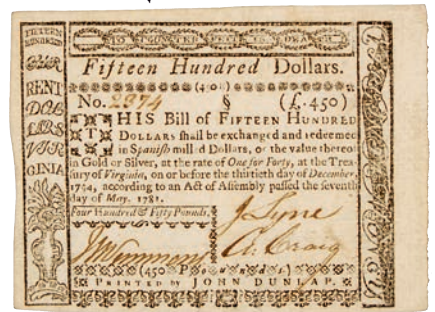 FIFTEEN
HUNDRED
CUR
RENT
DOL
LARS
VIR
GINIA
TO COUNTERFEIT IS DEATH
Fifteen Hundred Dollars.
No. 2374 § (£.450)
THIS Bill of FIFTEEN HUNDRED
DOLLARS shall be exchanged and redeemed
in Spanish milled Dollars, or the value thereof
in Gold or Silver, at the rate of One for Forty, at the Trea-
sury of Virginia, on or before the thirtieth day of December,
1794, according to an Act of Assembly passed the seventh
day of May, 1781.
Four Hundred & Fifty Pounds.
J Lyne
A. Craig
(450 Pounds)
PRINTED by JOHN DUNLAP.